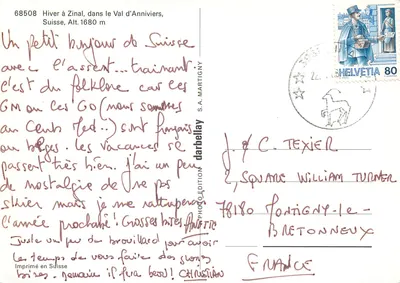 68508 Hiver à Zinal, dans le Val d'Anniviers,
Suisse, Alt. 1680 m
Un petit bonjour de Suisse
avec l'accent... trainant.
c'est du folklore car les
GM ou les GO (nous sommes
au Club Med..) sont français
ou belges. les vacances se
passent très bien. j'ai un peu
de nostalgie de ne pas
skier mais je me rattraperai
l'année prochaine! GROSSES BISES
Juste un peu de brouillard pour avoir
le temps de vous faire des grosses
bises. demain il fera beau! CHRISTIAN
Imprimé en Suisse
PHOTO EDITION darbellay S.A. MARTIGNY
HELVETIA 80
J & C. TEXIER
2, SQUARE WILLIAM TURNER
78180 MONTIGNY-le-
BRETONNEUX
FRANCE